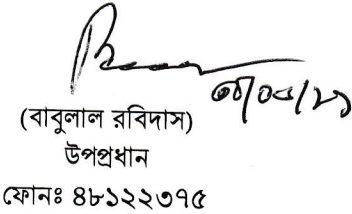 (বাবুলাল রবিদাস)
উপপ্রধান
ফোনঃ ৪৮১২২৩৭৫